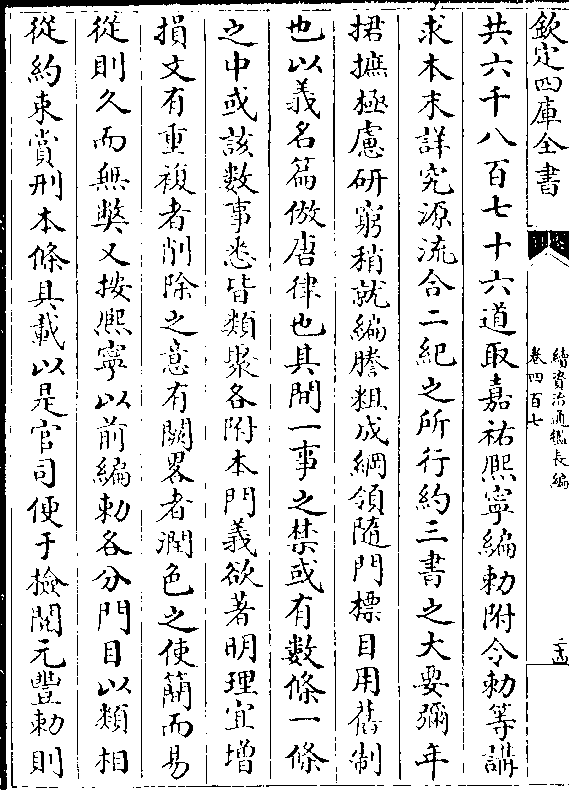 欽定四庫全書
續資治通鑑長編
卷四百七
共六千八百七十六道取嘉祐熙寧編勅附令勅等講
求本末詳究源流合二紀之所行約三書之大要彌年
捃摭極慮研窮稍就編謄粗成綱領隨門標目用舊制
也以義名篇倣唐律也其間一事之禁或有數條一條
之中或該數事悉皆類聚各附本門義欲著明理宜增
損文有重複者削除之意有闕畧者潤色之使簡而易
從則久而無弊又按熙寧以前編勅各分門目以類相
從約束賞刑本條具載以是官司便于檢閱元豐勅則